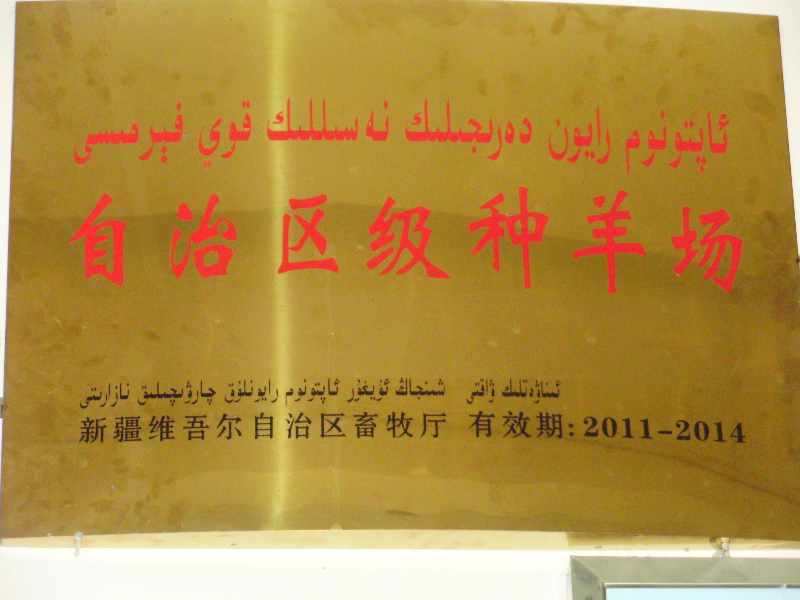 ئاپتونوم رايون دەرىجىلىك نەسىللىك قوي فېرمىسى
自治区级种羊场
شىنجاڭ ئۇيغۇر ئاپتونوم رايونلۇق چارۋىچىلىق نازارىتى ئىناۋەتلىك ۋاقتى
新疆维吾尔自治区畜牧厅 有效期:2011-2014